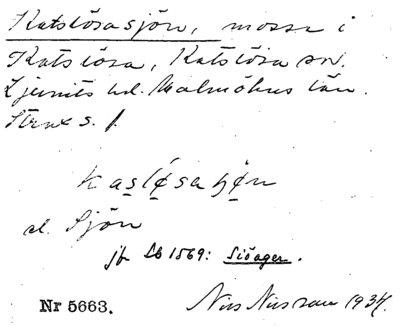 Katslösasjön, mosse i
Katslösa, Katslösa sn.
Ljunits hd. Malmöhus län.
s. f.
kaslǿsaʃǿn
el. Sjön
jfr Lb 1569: Siöager.
Nr 5663. Nils Nilsson 1934.